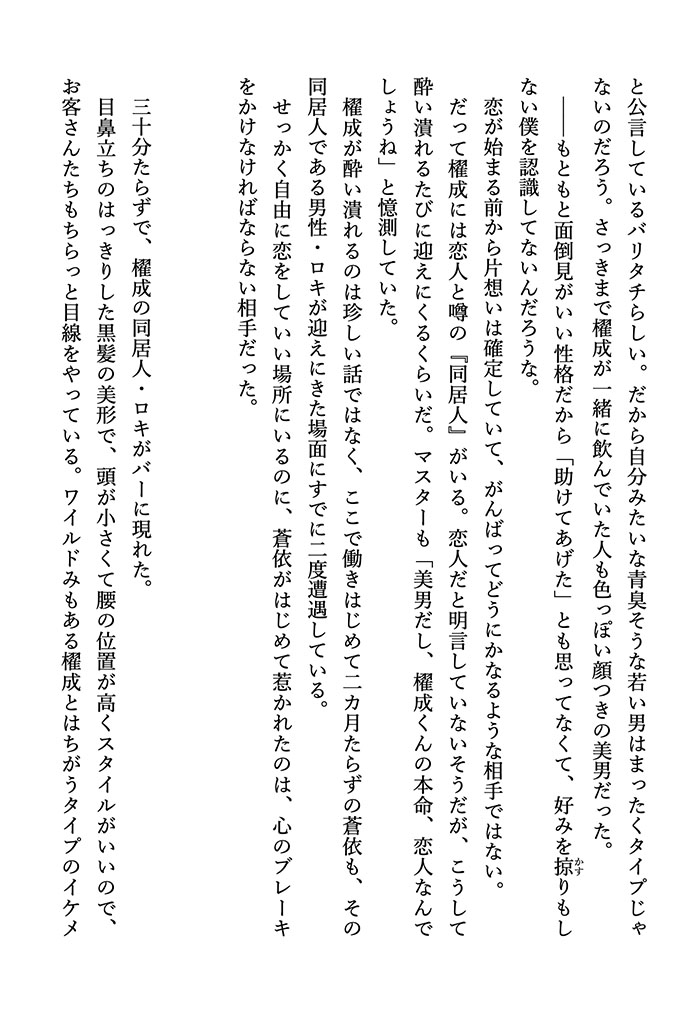 と公言しているバリタチらしい。だから自分みたいな青臭そうな若い男はまったくタイプじゃ
ないのだろう。さっきまで櫂成が一緒に飲んでいた人も色っぽい顔つきの美男だった。
――もともと面倒見がいい性格だから「助けてあげた」とも思ってなくて、好みを掠りもし
ない僕を認識してないんだろうな。
恋が始まる前から片想いは確定していて、がんばってどうにかなるような相手ではない。
だって櫂成には恋人と噂の『同居人』がいる。恋人だと明言していないそうだが、こうして
酔い潰れるたびに迎えにくるくらいだ。マスターも「美男だし、櫂成くんの本命、恋人なんで
しょうね」と憶測していた。
櫂成が酔い潰れるのは珍しい話ではなく、ここで働きはじめて二カ月たらずの蒼依も、その
同居人である男性・ロキが迎えにきた場面にすでに二度遭遇している。
せっかく自由に恋をしていい場所にいるのに、蒼依がはじめて惹かれたのは、心のブレーキ
をかけなければならない相手だった。
三十分たらずで、櫂成の同居人・ロキがバーに現れた。
目鼻立ちのはっきりした黒髪の美形で、頭が小さくて腰の位置が高くスタイルがいいので、
お客さんたちもちらっと目線をやっている。ワイルドみもある櫂成とはちがうタイプのイケメ